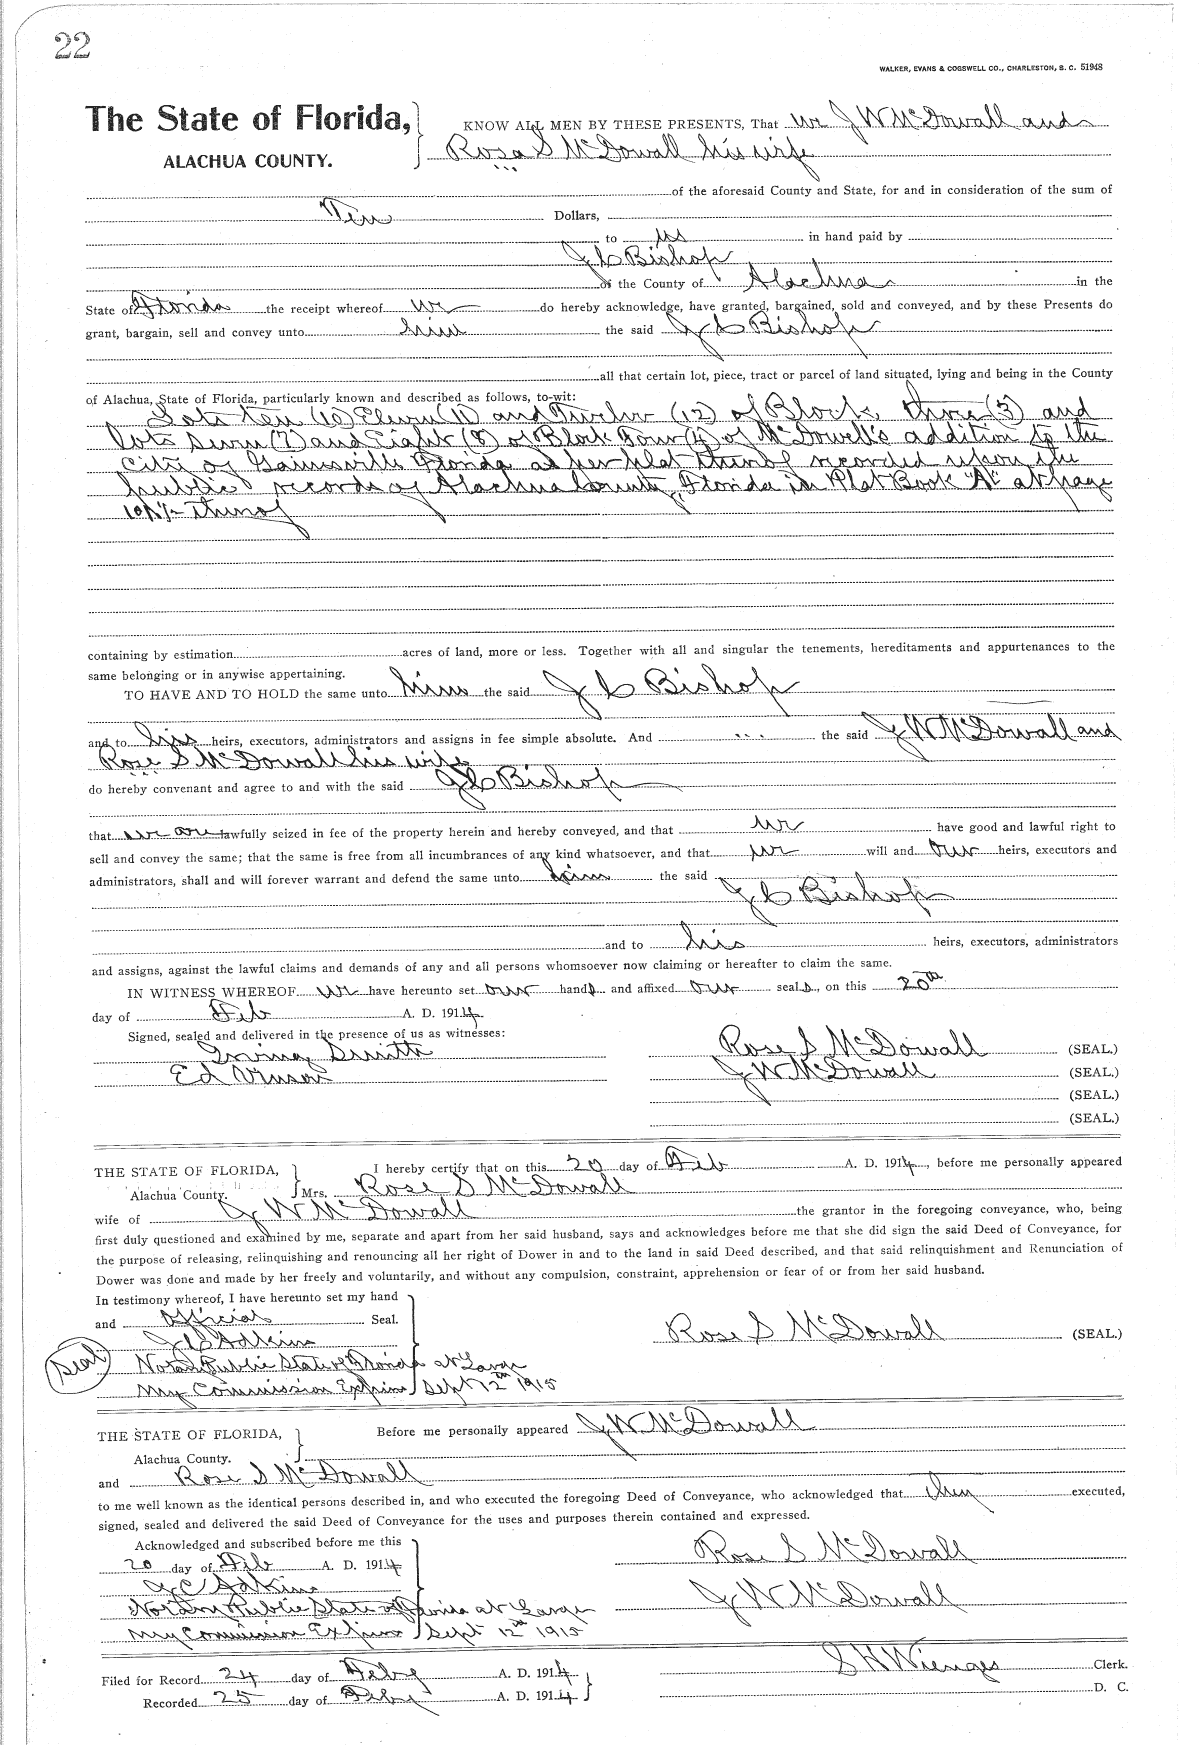 22
WALKER, EVANS & COGSWELL CO., CHARLESTON, S. C. 51948
The State of Florida, KNOW ALL MEN BY THESE PRESENTS, That we J W McDowall and
ALACHUA COUNTY. Rosa S McDowall his wife
of the aforesaid County and State, for and in consideration of the sum of
Ten Dollars,
to us in hand paid by
J C Bishop
of the County of Alachua in the
State of Florida the receipt whereof we do hereby acknowledge, have granted, bargained, sold and conveyed, and by these Presents do
grant, bargain, sell and convey unto him the said J C Bishop
all that certain lot, piece, tract or parcel of land situated, lying and being in the County
of Alachua, State of Florida, particularly known and described as follows, to-wit:
Lots ten (10) Eleven (11) and Twelve (12) of Block three (3) and
lots seven (7) and Eight (8) of Block Four (4) of McDowell's addition to the
City of Gainesville Florida as per plat thereof recorded upon the
public records of Alachua County, Florida in Plat Book "A" at page
thereof
containing by estimation acres of land, more or less. Together with all and singular the tenements, hereditaments and appurtenances to the
same belonging or in anywise appertaining.
TO HAVE AND TO HOLD the same unto him the said J C Bishop
and to his heirs, executors, administrators and assigns in fee simple absolute. And the said J W McDowall and
Rose S McDowall his wife
do hereby convenant and agree to and with the said J C Bishop
that we are lawfully seized in fee of the property herein and hereby conveyed, and that we have good and lawful right to
sell and convey the same; that the same is free from all incumbrances of any kind whatsoever, and that we will and our heirs, executors and
administrators, shall and will forever warrant and defend the same unto him the said
J C Bishop
and to his heirs, executors, administrators
and assigns, against the lawful claims and demands of any and all persons whomsoever now claiming or hereafter to claim the same.
IN WITNESS WHEREOF we have hereunto set our hands and affixed our seals, on this 20th
day of Feb A. D. 1914.
Signed, sealed and delivered in the presence of us as witnesses:
Irving Smith Rose S McDowall (SEAL.)
Ed Vinson J W McDowall (SEAL.)
(SEAL.)
(SEAL.)
THE STATE OF FLORIDA, I hereby certify that on this 20 day of Feb A. D. 1914, before me personally appeared
Alachua County. Mrs. Rose S McDowall
wife of J W McDowall the grantor in the foregoing conveyance, who, being
first duly questioned and examined by me, separate and apart from her said husband, says and acknowledges before me that she did sign the said Deed of Conveyance, for
the purpose of releasing, relinquishing and renouncing all her right of Dower in and to the land in said Deed described, and that said relinquishment and Renunciation of
Dower was done and made by her freely and voluntarily, and without any compulsion, constraint, apprehension or fear of or from her said husband.
In testimony whereof, I have hereunto set my hand
and official Seal.
J C Adkins Rose S McDowall (SEAL.)
Seal Notary Public State of Florida at Large
My Commission Expires Sept 12th 1915
THE STATE OF FLORIDA, Before me personally appeared J W McDowall
Alachua County.
and Rose S McDowall
to me well known as the identical persons described in, and who executed the foregoing Deed of Conveyance, who acknowledged that they executed,
signed, sealed and delivered the said Deed of Conveyance for the uses and purposes therein contained and expressed.
Acknowledged and subscribed before me this Rose S McDowall
20 day of Feb A. D. 1914
J C Adkins J W McDowall
Notary Public State of Florida at Large
My Commission Expires Sept 12th 1915
S H Wienges Clerk.
Filed for Record 24 day of Feby A. D. 1914
Recorded 25 day of Feby A. D. 1914 D. C.